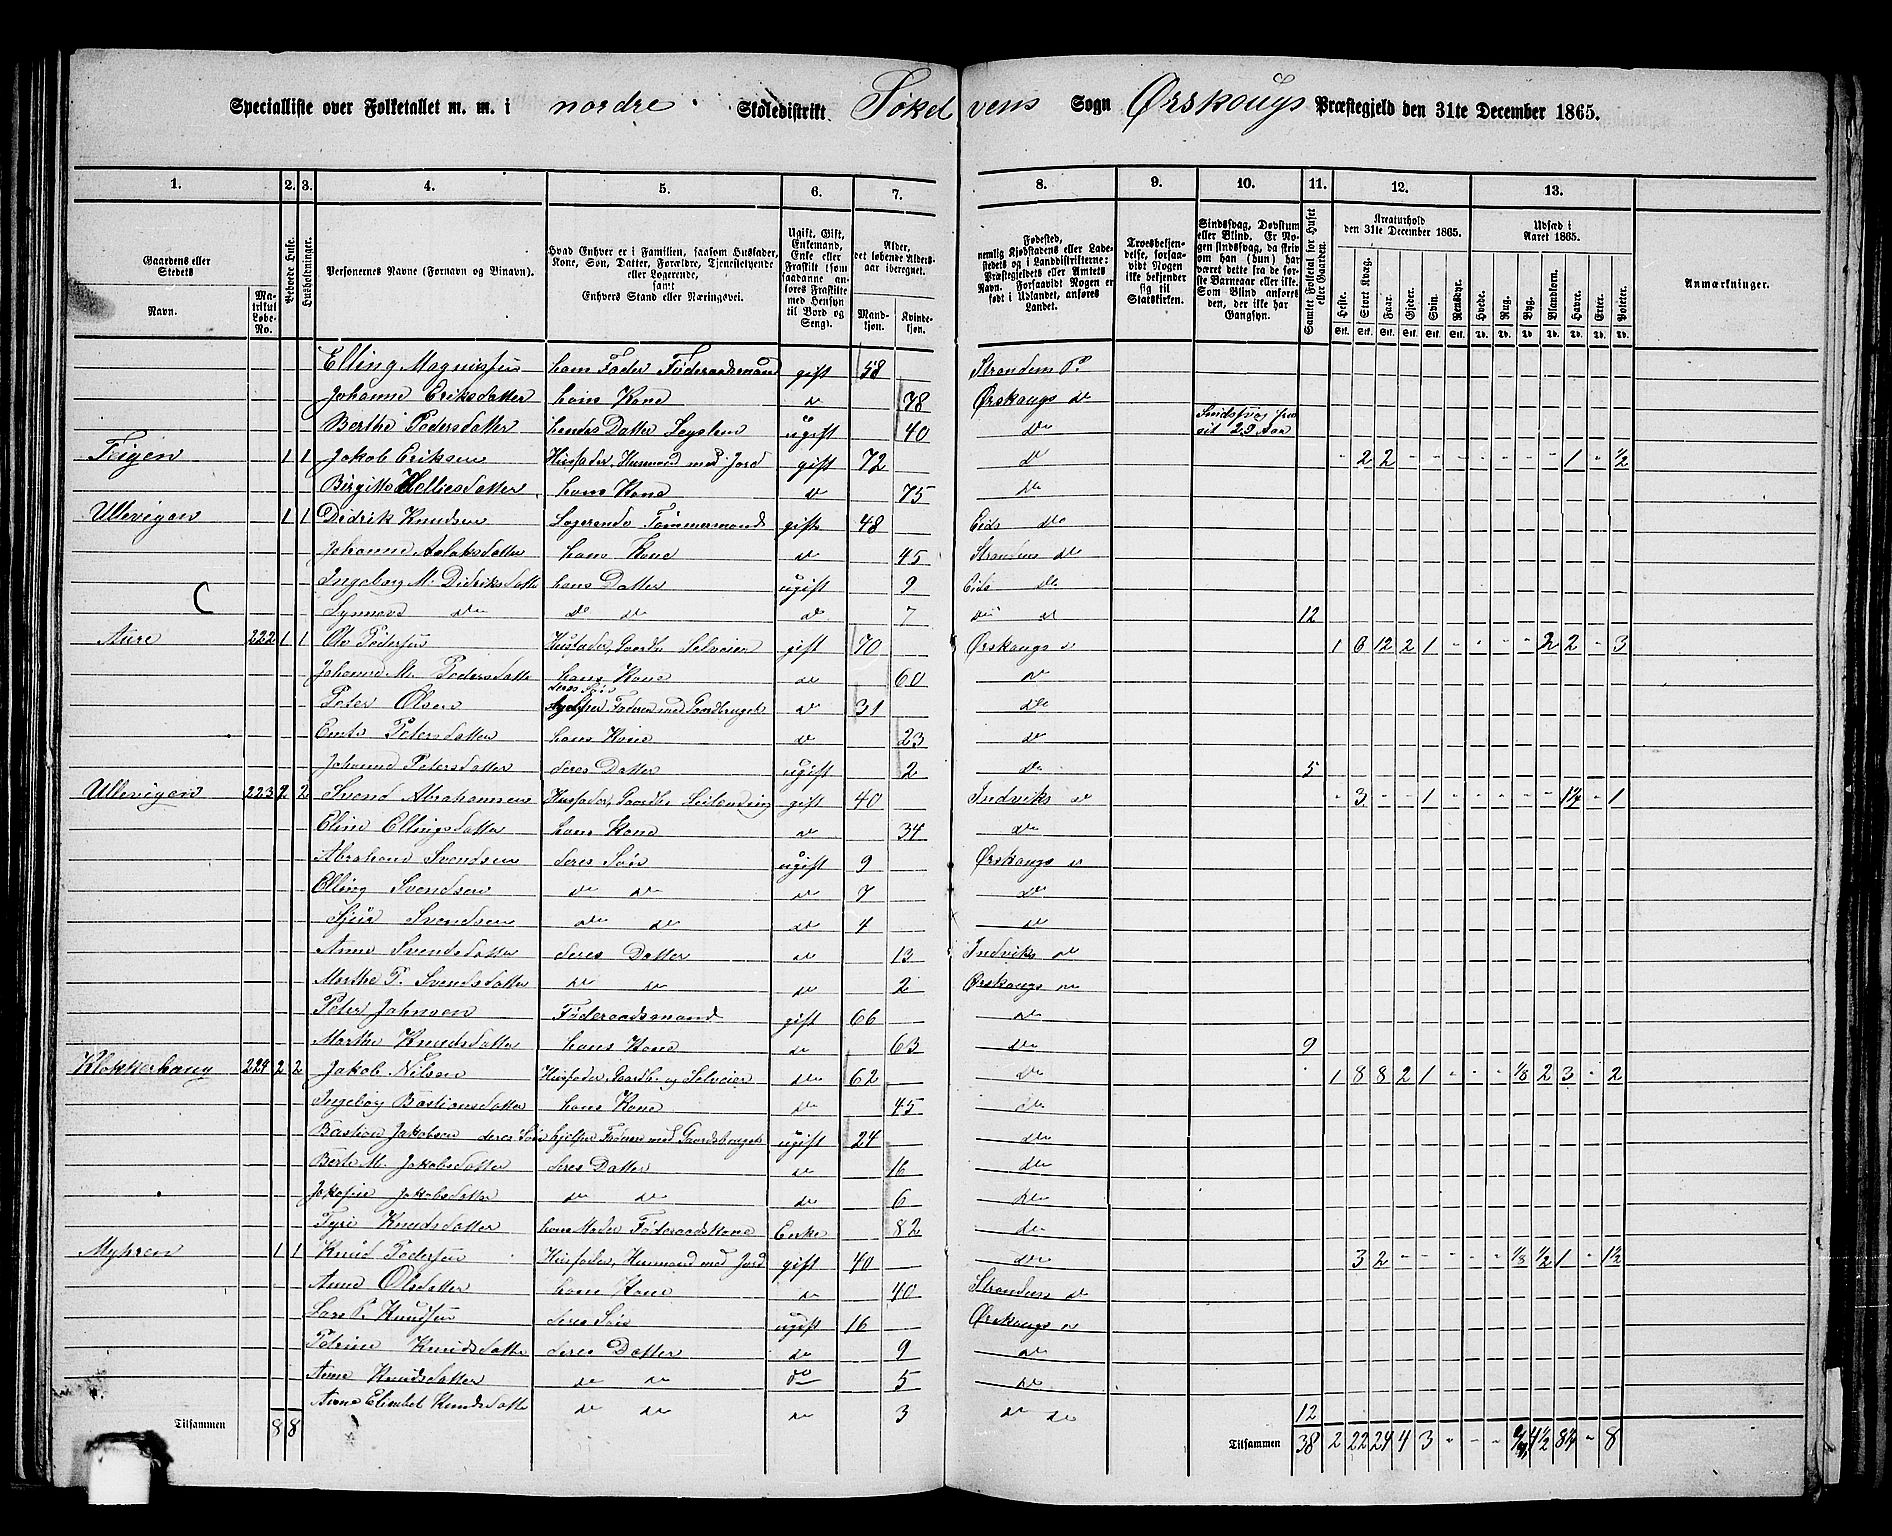 Specialliste over Folketallet m. m. i nordre Skoledistrikt Søkelvens Sogn Ørskougs Præstegjeld den 31te December 1865.
1. 2. 3. 4. 5. 6. 7. 8. 9. 10. 11. 12. 13.
Gaardens eller Stedets
Navn.
Matrikul Løbe-No.
Beboede Huse.
Husholdninger.
Personernes Navne (Fornavn og Vinavn).
Hvad Enhver er i Familien, saasom Husfader, Kone, Søn, Datter, Forældre, Tjenestetyende eller Logerende, samt Enhvers Stand eller Næringsvei.
Ugift, Gift, Enkemand, Enke eller Fraskilt (som saadanne anføres Fraskilte med Hensyn til Bord og Seng).
Alder, det løbende Alders-aar iberegnet.
Mandkjøn. Kvindekjøn.
Fødested, nemlig Kjøbstadens eller Ladestedets og i Landdistrikterne: Præstegjeldets eller Amtets Navn. Forsaavidt Nogen er født i Udlandet, anføres Landet.
Troesbekjendelse, forsaavidt Nogen ikke bekjender sig til Statskirken.
Sindssvag, Døvstum eller Blind. Er Nogen sindssvag, da skriv om han (hun) har været dette fra de første Barneaar eller ikke. Som Blind anføres den, der ikke har Gangsyn.
Samlet Folketal for Huset eller Gaarden.
Kreaturhold den 31te December 1865.
Heste. Stort Kvæg. Faar. Gjeder. Svin. Rensdyr.
Udsæd i Aaret 1865.
Hvede. Rug. Byg. Blandkorn. Havre. Erter. Poteter.
Anmærkninger.
Elling Magnussen hans Fader Føderaadsmand gift 58 Strandens P.
Johanne Eriksdatter hans Kone do 78 Ørskougs do
Berthe Pedersdatter hendes Datter ugift 40 do
Jakob Eriksen Husfader, Husmand med Jord gift 72 do - 2 2 - - - - - - - 1 - ½
1 1
Birgitte hans Kone do 75 do
Ullevigen 1 1 Didrik Knudsen Logerende Tømmermand gift 48 Eids do
Johanne Aslaksdatter hans Kone do 45 Strandens do
Ingeborg M. Didriksdatter hans Datter ugift 9 Eids do
do do do do 7 do do 12
Aure 222 1 1 Ole Pedersen Husfader, Gaardbr Selveier gift 70 Ørskougs do 1 6 12 2 1 - - - - 2 2 - 3
Johanne M. Pedersdatter hans Kone do 60 do
Peter Olsen deres Søn hjelper Faderen med Gaardbruget do 31 do
Petersdatter hans Kone do 23 do
Johanne Petersdatter deres Datter ugift 2 do 5
Ullevigen 223 2 2 Svend Abrahamsen Husfader, Gaardbr Leilending gift 40 Indviks do - 3 - - 1 - - - - - 1½ - 1
Eline Ellingsdatter hans Kone do 34 do
Abraham Svendsen deres Søn ugift 9 Ørskougs do
Elling Svendsen do do do 7 do
Sjur Svendsen do do do 4 do
Anne Svendsdatter deres Datter do 13 Indviks do
Marthe P. Svendsdatter do do do 2 Ørskougs do
Peter Johnsen Føderaadsmand gift 66 do
Marthe Knudsdatter hans Kone do 63 do 9
Klokkerhaug 224 2 2 Jakob Nilsen Husfader, Gaardbr og Selveier do 62 do 1 8 8 2 1 - - - ⅛ 2 3 - 2
Ingebor Bastiansdatter hans Kone do 45 do
Bastian Jakobsen deres Søn hjelper Faderen med Gaardsbruget ugift 24 do
Berte M. Jakobsdatter deres Datter do 16 do
Jakobsdatter do do do 6 do
Knudsdatter hans Moder Føderaadskone Enke 82 do
Myhren 1 1 Knud Pedersen Husfader, Husmand med Jord gift 40 do 3 2 - - - - - ⅛ ½ 1 - 1½
Anne Olsdatter hans Kone do 40 Strandens do
Lars P. Knudsen deres Søn ugift 16 Ørskougs do
Petrine Knudsdatter deres Datter do 9 do
Anne Knudsdatter do do do 5 do
Anne Elisabet Knudsdatter do do do 3 do do 12
Tilsammen 8 8 Tilsammen 38 2 22 24 4 3 - - - 4½ - 8